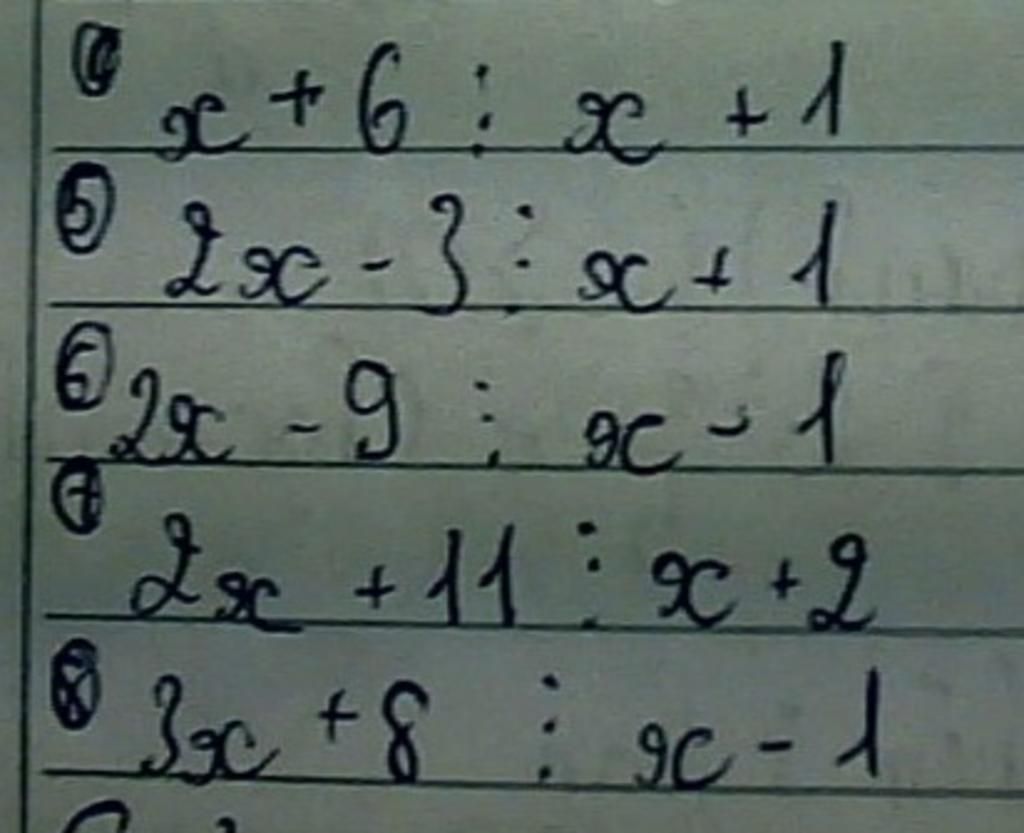 ④ x + 6 ⋮ x + 1
⑤ 2x - 3 ⋮ x + 1
⑥ 2x - 9 ⋮ x - 1
⑦ 2x + 11 ⋮ x + 2
⑧ 3x + 8 ⋮ x - 1